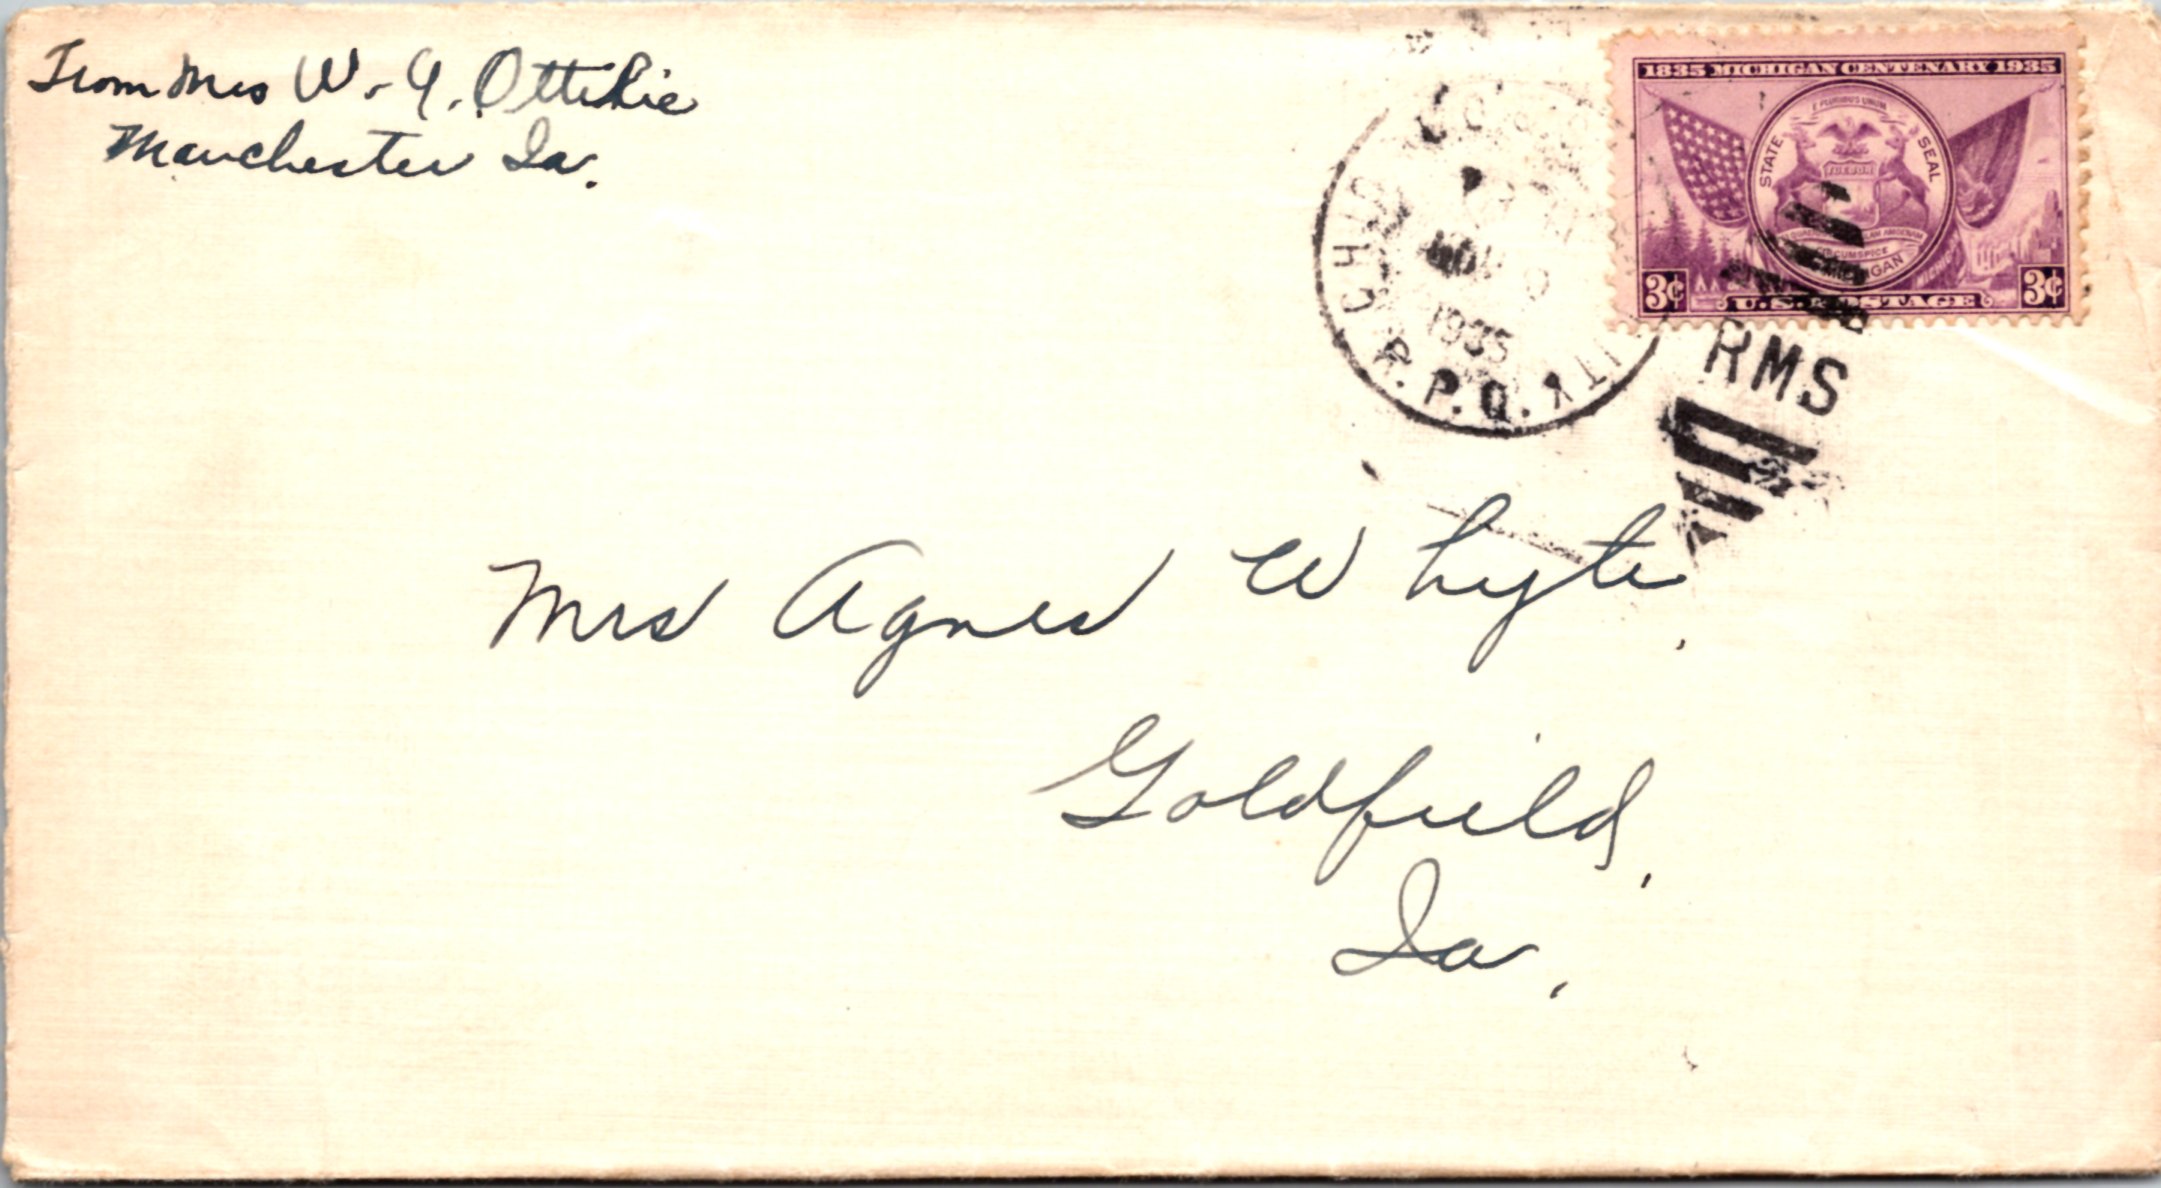 From Mrs W. A. Ottilie
Manchester Ia.
1835 MICHIGAN CENTENARY 1935
E PLURIBUS UNUM
STATE SEAL
TUEBOR
CIRCUMSPICE
MICHIGAN
3¢ U.S. POSTAGE 3¢
CHIC
R.P.O.
NOV
1935
RMS
Mrs Agnes Whyte.
Goldfield,
Ia.